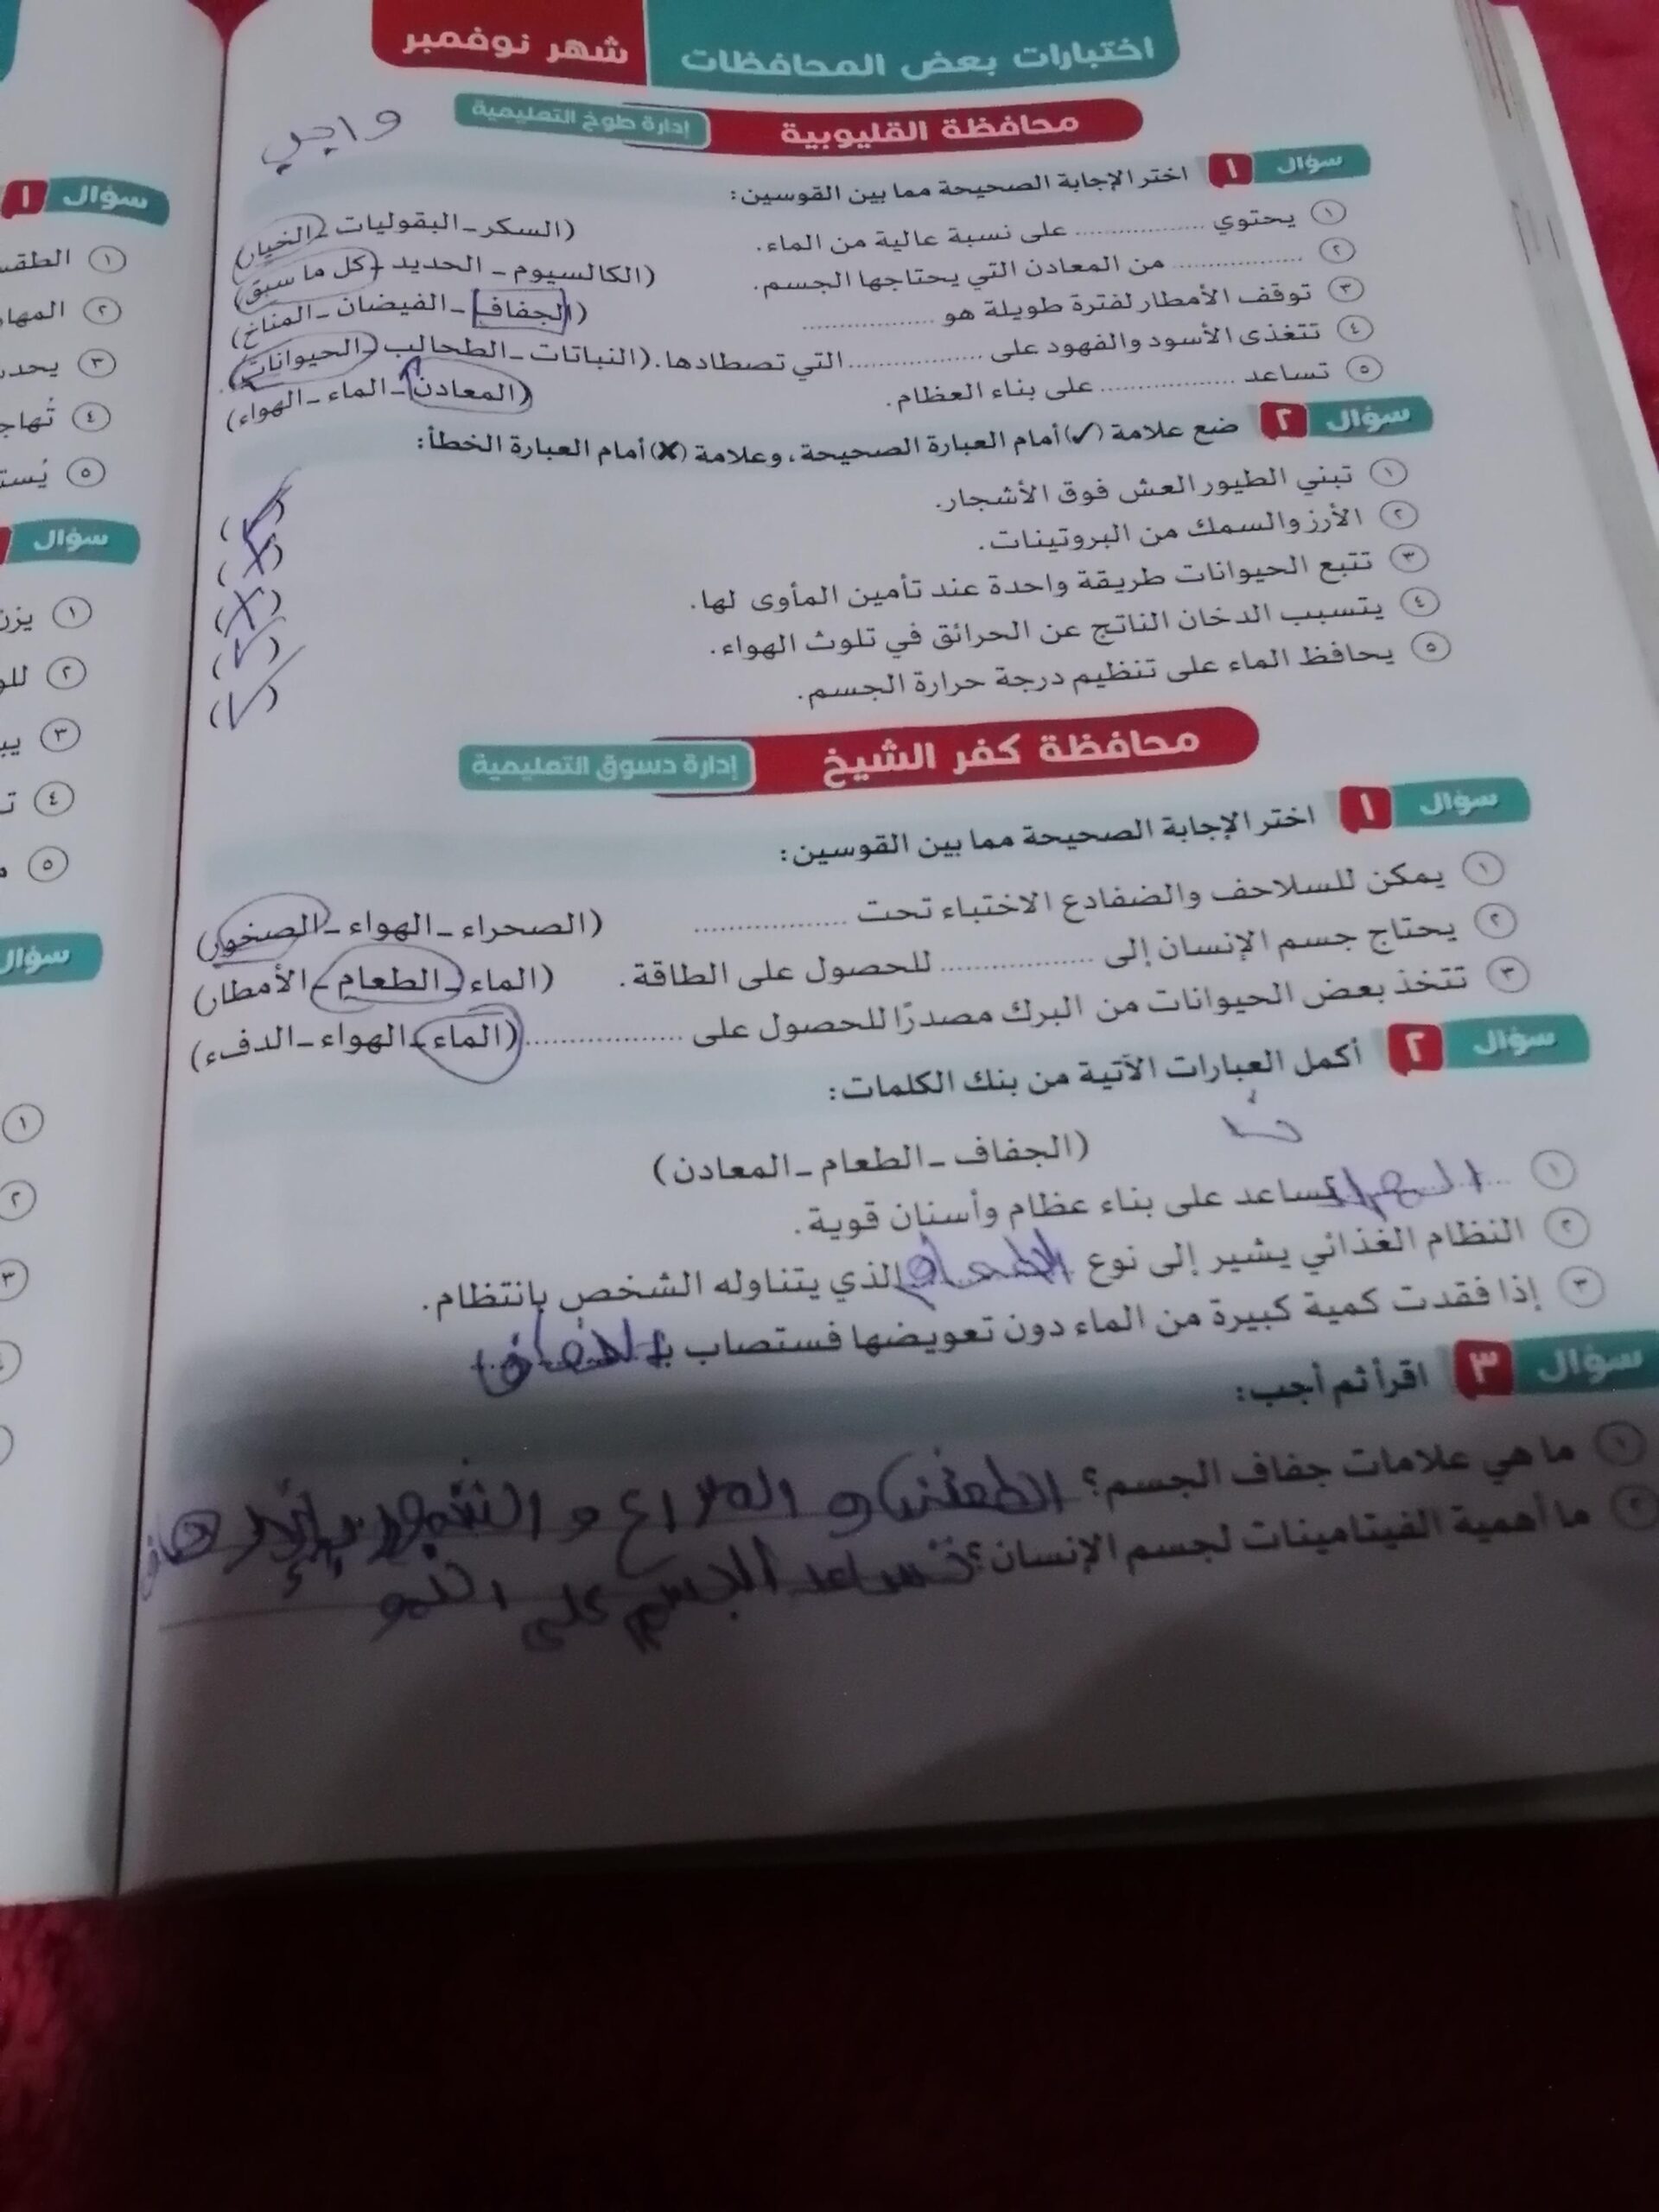 اختبارات بعض المحافظات شهر نوفمبر
محافظة القليوبية إدارة طوخ التعليمية
واجب
سؤال ١ اختر الإجابة الصحيحة مما بين القوسين:
١ يحتوي .................. على نسبة عالية من الماء. (السكر - البقوليات - الخيار)
٢ .................. من المعادن التي يحتاجها الجسم. (الكالسيوم - الحديد - كل ما سبق)
٣ توقف الأمطار لفترة طويلة هو .................. (الجفاف - الفيضان - المناخ)
٤ تتغذى الأسود والفهود على .................. التي تصطادها. (النباتات - الطحالب - الحيوانات)
٥ تساعد .................. على بناء العظام. (المعادن - الماء - الهواء)
سؤال ٢ ضع علامة (✓) أمام العبارة الصحيحة، وعلامة (✗) أمام العبارة الخطأ:
١ تبني الطيور العش فوق الأشجار. (✓)
٢ الأرز والسمك من البروتينات. (✗)
٣ تتبع الحيوانات طريقة واحدة عند تأمين المأوى لها. (✗)
٤ يتسبب الدخان الناتج عن الحرائق في تلوث الهواء. (✓)
٥ يحافظ الماء على تنظيم درجة حرارة الجسم. (✓)
محافظة كفر الشيخ إدارة دسوق التعليمية
سؤال ١ اختر الإجابة الصحيحة مما بين القوسين:
١ يمكن للسلاحف والضفادع الاختباء تحت .................. (الصحراء - الهواء - الصخور)
٢ يحتاج جسم الإنسان إلى .................. للحصول على الطاقة. (الماء - الطعام - الأمطار)
٣ تتخذ بعض الحيوانات من البرك مصدرًا للحصول على .................. (الماء - الهواء - الدفء)
سؤال ٢ أكمل العبارات الآتية من بنك الكلمات:
(الجفاف - الطعام - المعادن)
١ تساعد على بناء عظام وأسنان قوية.
٢ النظام الغذائي يشير إلى نوع الطعام الذي يتناوله الشخص بانتظام.
٣ إذا فقدت كمية كبيرة من الماء دون تعويضها فستصاب بـ الجفاف
سؤال ٣ اقرأ ثم أجب:
١ ما هي علامات جفاف الجسم؟ العطش و الصداع و الشعور بالإرهاق
٢ ما أهمية الفيتامينات لجسم الإنسان؟ تساعد الجسم على النمو
سؤال ١
١ الطقس
٢
٣
٤
٥
سؤال
١
٢
٣
٤
٥
سؤال
١
٢
٣